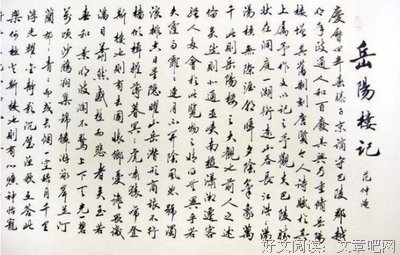 岳陽樓記
范仲淹
慶曆四年春滕子京謫守巴陵郡越
明年政通人和百廢具興乃重修岳陽
樓增其舊制刻唐賢今人詩賦於其
上屬予作文以記之予觀夫巴陵勝
狀在洞庭一湖銜遠山吞長江浩浩
湯湯橫無際涯朝暉夕陰氣象萬
千此則岳陽樓之大觀也前人之述
備矣然則北通巫峽南極瀟湘遷客
騷人多會於此覽物之情得無異乎若
夫霪雨霏霏連月不開陰風怒號濁
浪排空日星隱曜山岳潛形商旅不行
檣傾楫摧薄暮冥冥虎嘯猿啼登
斯樓也則有去國懷鄉憂讒畏譏
滿目蕭然感極而悲者矣至若
春和景明波瀾不驚上下天光一碧
萬頃沙鷗翔集錦鱗游泳岸芷汀
蘭郁郁青青而或長煙一空皓月千里
浮光耀金靜影沉璧漁歌互答此
樂何極登斯樓也則有心曠神怡寵
好文阅读:文章吧网